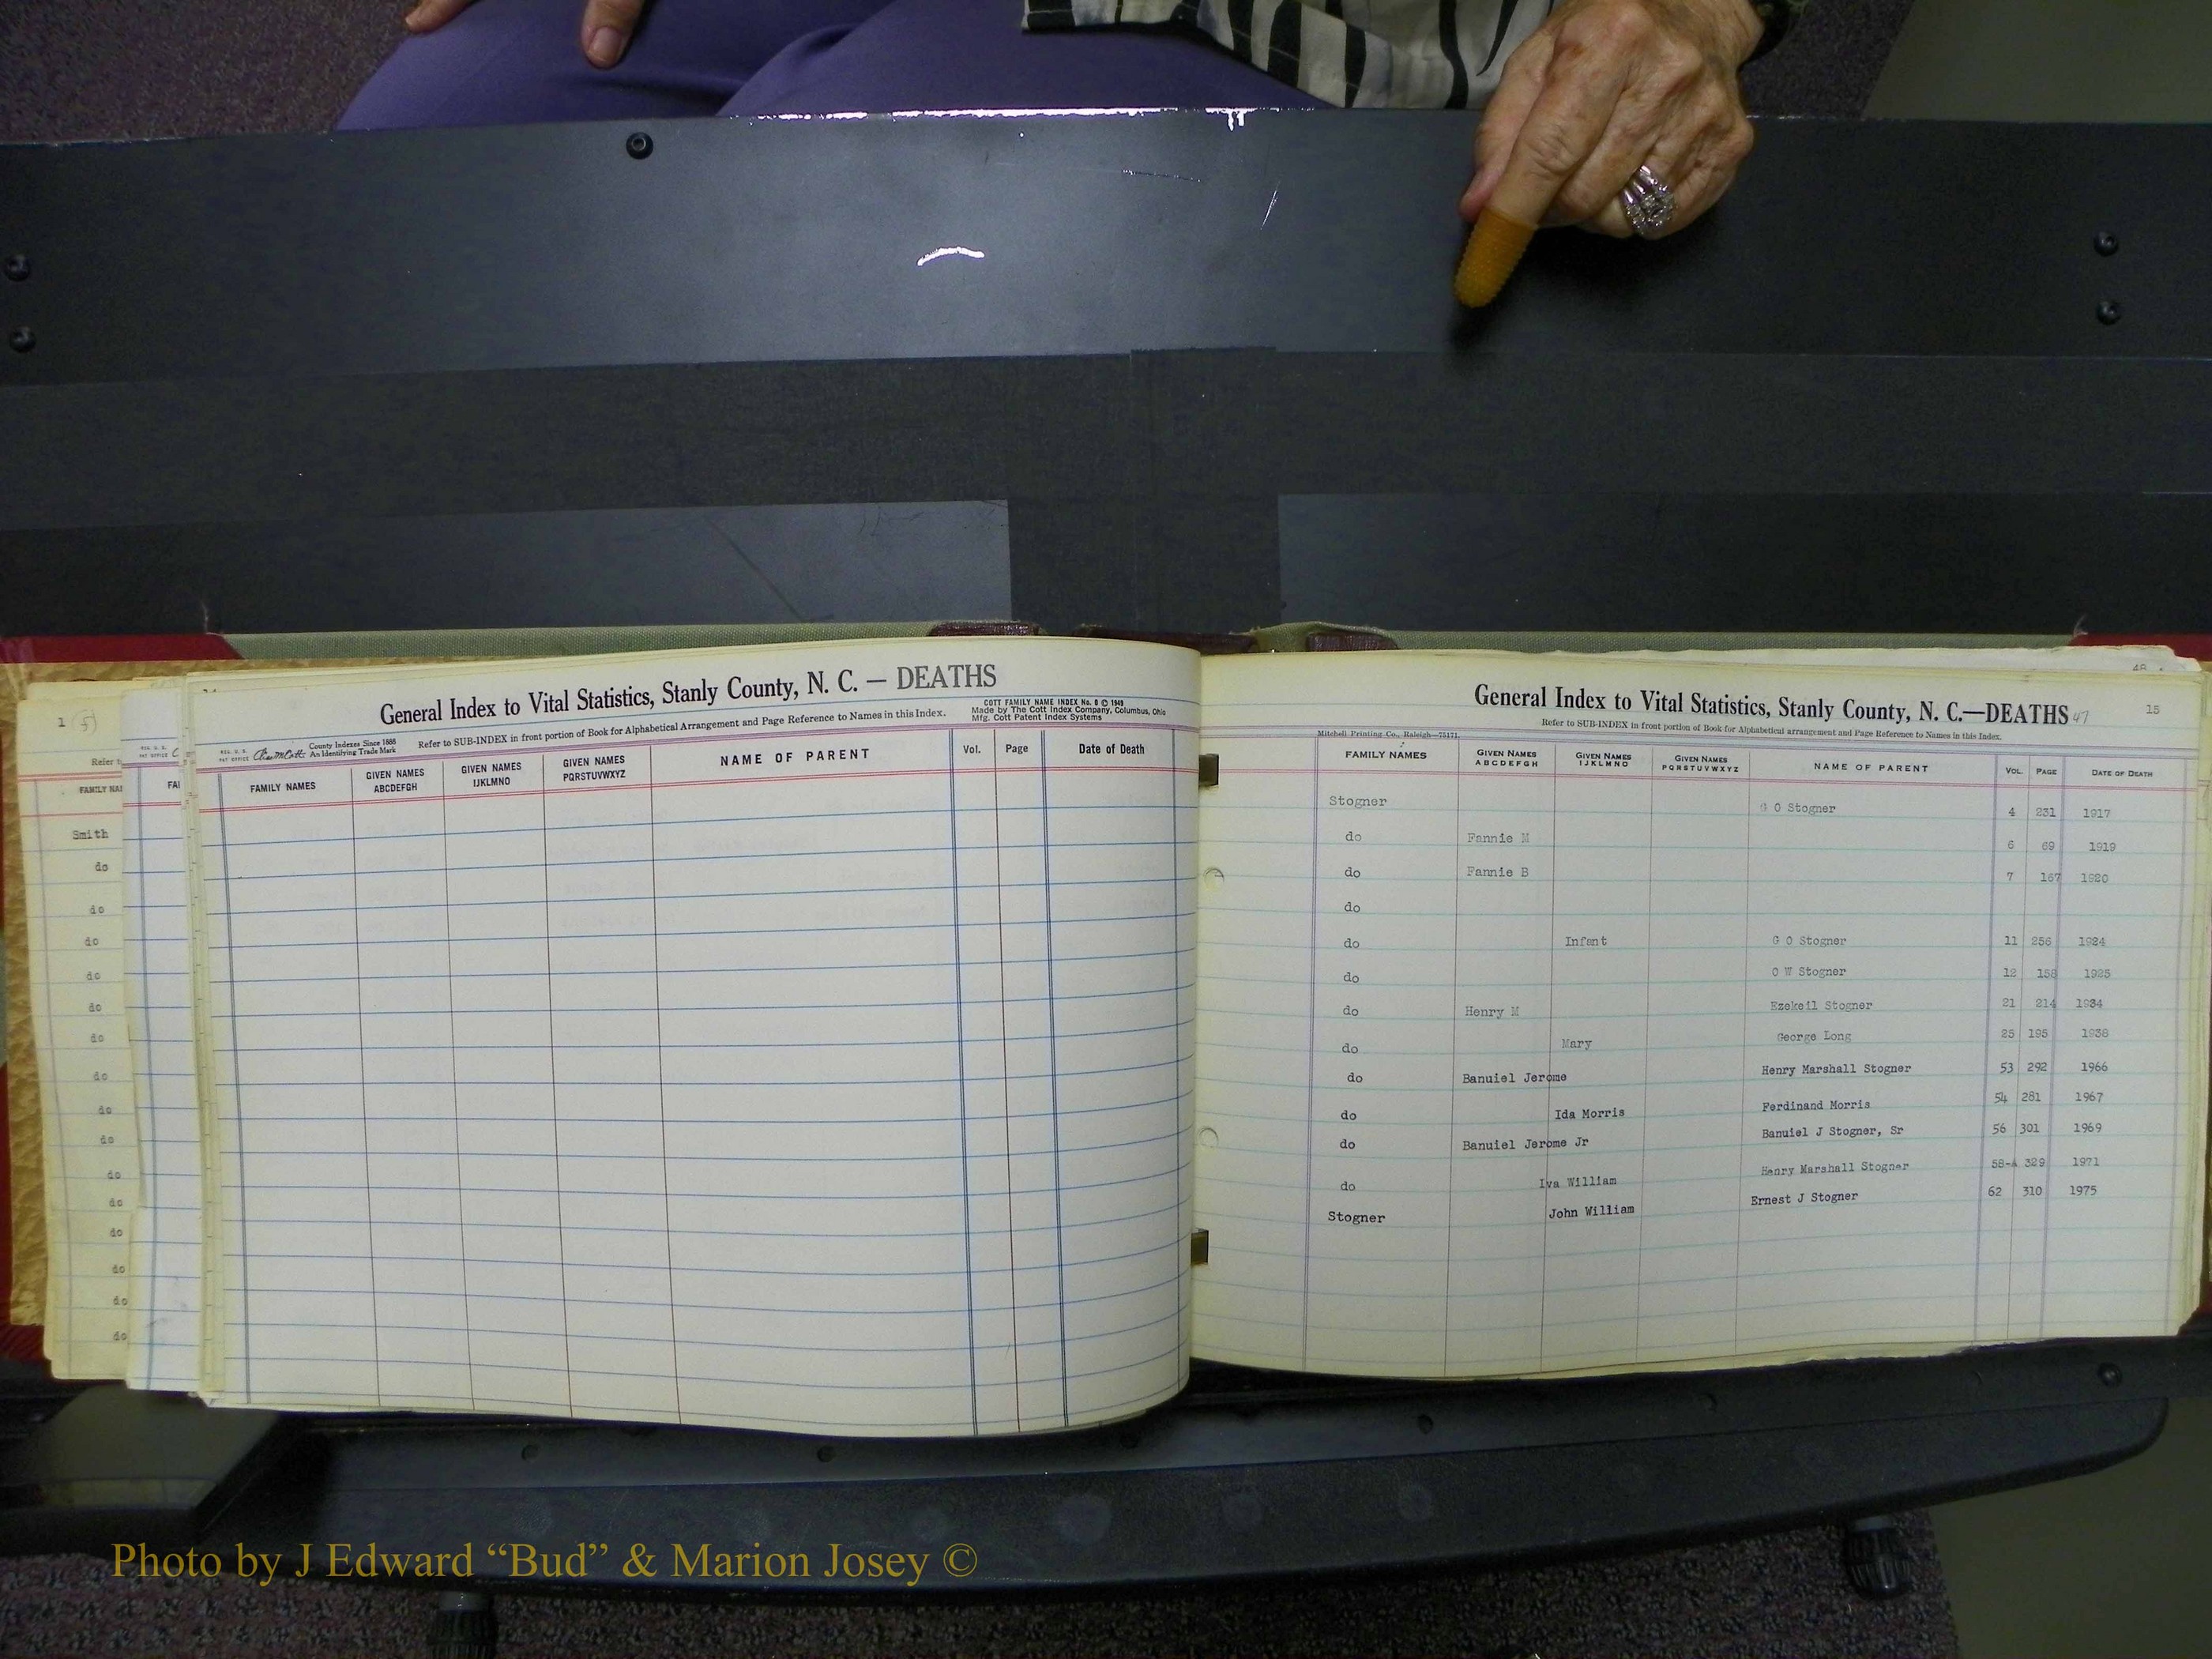 1 (5)
Refer t
FAMILY NA
Smith
do
do
do
do
do
do
do
do
do
do
do
do
do
do
do
FA
General Index to Vital Statistics, Stanly County, N. C. — DEATHS
COTT FAMILY NAME INDEX No. 8 © 1949
Made by The Cott Index Company, Columbus, Ohio
Mfg. Cott Patent Index Systems
County Indexes Since 1888
An Identifying Trade Mark
Refer to SUB-INDEX in front portion of Book for Alphabetical Arrangement and Page Reference to Names in this Index.
FAMILY NAMES GIVEN NAMES ABCDEFGH GIVEN NAMES IJKLMNO GIVEN NAMES PQRSTUVWXYZ NAME OF PARENT Vol. Page Date of Death
48
General Index to Vital Statistics, Stanly County, N. C.—DEATHS 47 15
Refer to SUB-INDEX in front portion of Book for Alphabetical arrangement and Page Reference to Names in this Index.
Mitchell Printing Co., Raleigh—75171
FAMILY NAMES GIVEN NAMES ABCDEFGH GIVEN NAMES IJKLMNO GIVEN NAMES PQRSTUVWXYZ NAME OF PARENT VOL. PAGE DATE OF DEATH
Stogner G O Stogner 4 231 1917
do Fannie M 6 69 1919
do Fannie B 7 167 1920
do
do Infant G O Stogner 11 256 1924
do O W Stogner 12 158 1925
do Henry M Ezekeil Stogner 21 214 1934
do Mary George Long 25 195 1938
do Banuiel Jerome Henry Marshall Stogner 53 292 1966
do Ida Morris Ferdinand Morris 54 281 1967
do Banuiel Jerome Jr Banuiel J Stogner, Sr 56 301 1969
do Iva William Henry Marshall Stogner 58-A 329 1971
Stogner John William Ernest J Stogner 62 310 1975
Photo by J Edward “Bud” & Marion Josey ©